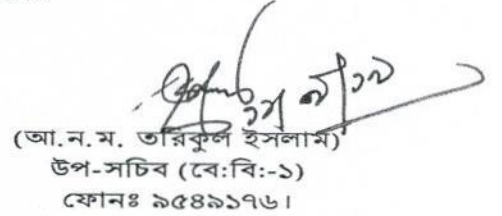 (আ.ন.ম. তরিকুল ইসলাম)
উপ-সচিব (বে:বি:-১)
ফোনঃ ৯৫৪৯১৭৬।